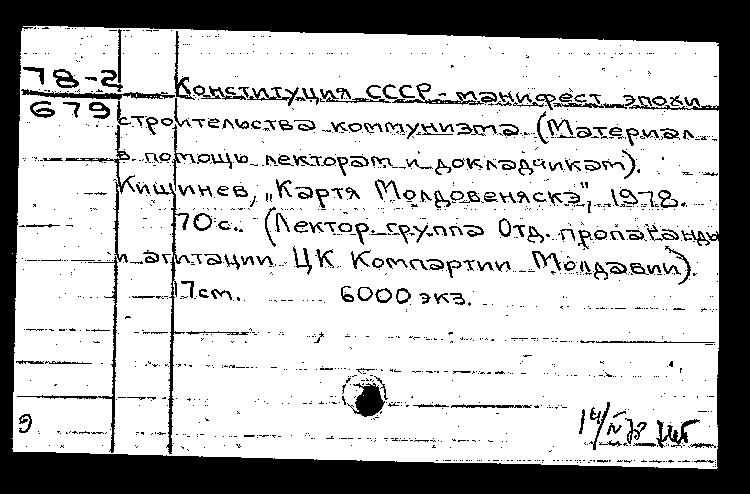 78-2
679
Конституция СССР - манифест эпохи
строительства коммунизма (Материал
в помощь лекторам и докладчикам).
Кишинев, „Картя Молдовеняскэ", 1978.
70 с. (Лектор. группа Отд. пропаганды
и агитации ЦК Компартии Молдавии).
17 см. 6000 экз.